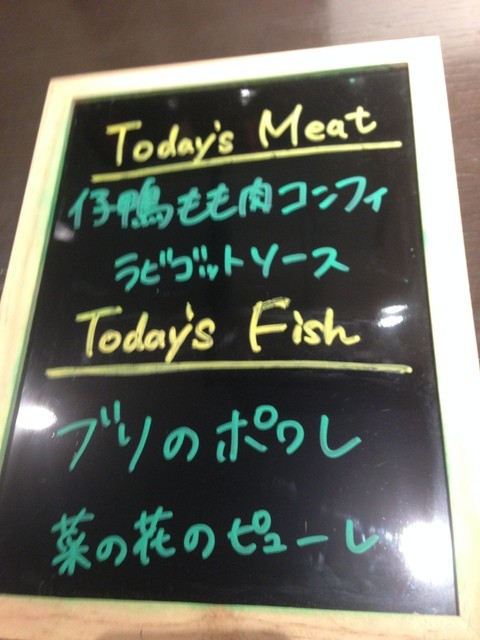 Today's Meat
仔鴨もも肉コンフィ
ラビゴットソース
Today's Fish
ブリのポワレ
菜の花のピューレ